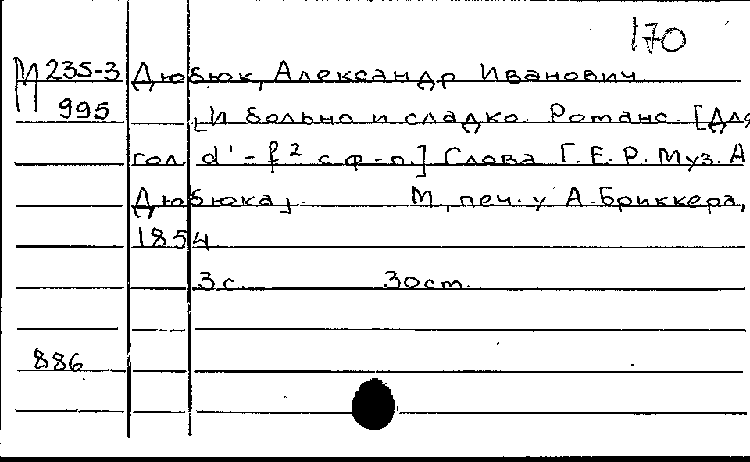 170
М 235-3 Дюбюк, Александр Иванович
995 [И больно и сладко. Романс. [Для
гол. d'-f² с ф-п.] Слова Г.Е.Р. Муз. А
Дюбюка] М., печ. у А. Бриккера,
1854
3 с. 30 cm.
886